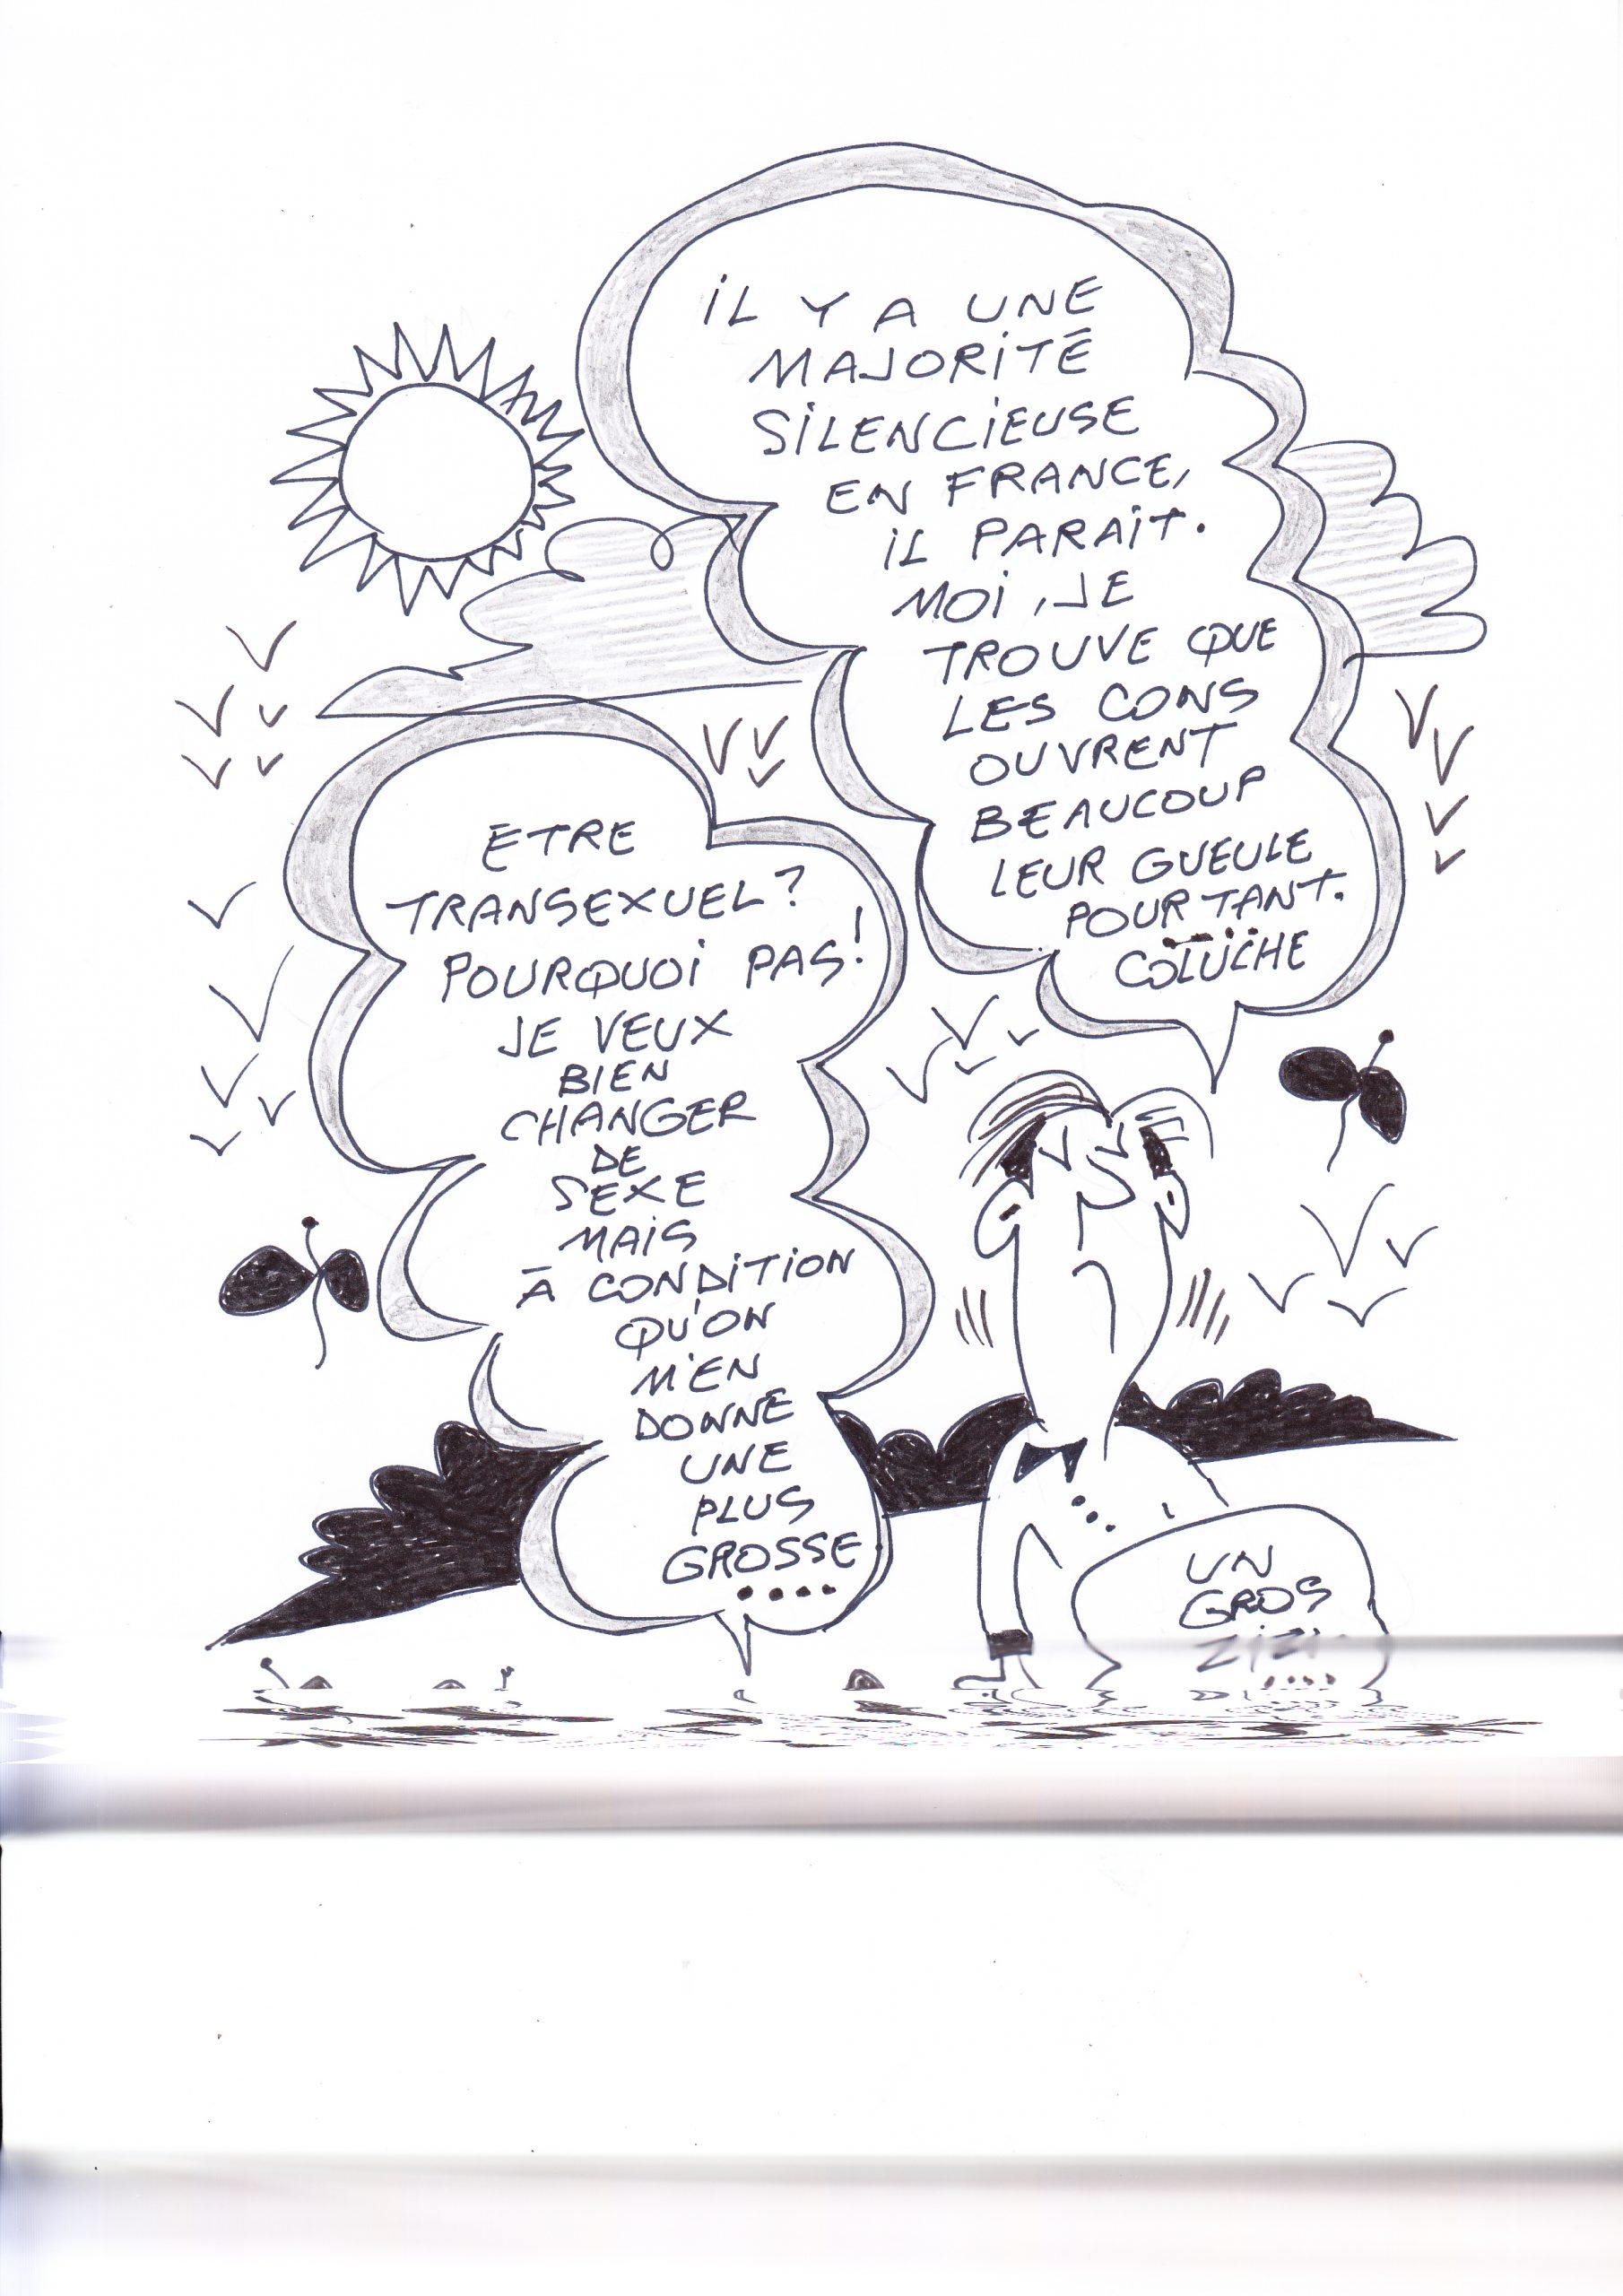 IL Y A UNE
MAJORITÉ
SILENCIEUSE
EN FRANCE,
IL PARAIT.
MOI, JE
TROUVE QUE
LES CONS
OUVRENT
BEAUCOUP
LEUR GUEULE
POURTANT.
COLUCHE
ETRE
TRANSEXUEL?
POURQUOI PAS!
JE VEUX
BIEN
CHANGER
DE
SEXE
MAIS
À CONDITION
QU'ON
M'EN
DONNE
UNE
PLUS
GROSSE
....
UN
GROS
ZIZI.
....